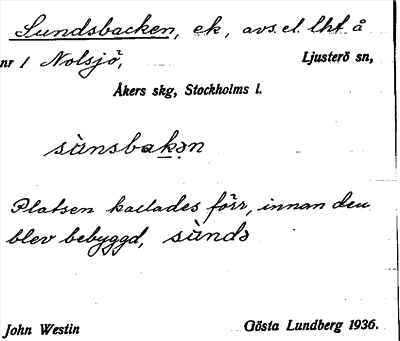 Sundsbacken, ek, avs. el. lht. å
nr 1 Nolsjö, Ljusterö sn,
Åkers skg, Stockholms l.
sùnsbakən
Platsen kallades förr, innan den
blev bebyggd, sùndə
John Westin Gösta Lundberg 1936.